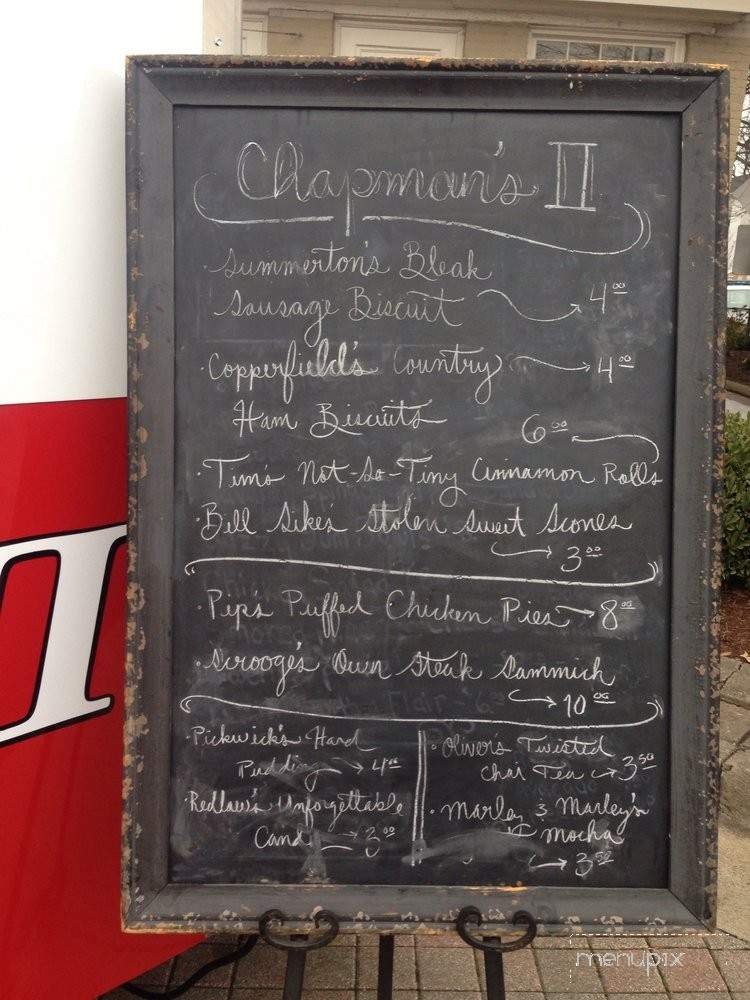 Chapman's II
· Summerton's Bleak
Sausage Biscuit → 4.00
· Copperfield's Country → 4.00
Ham Biscuits
6.00
· Tim's Not-So-Tiny Cinnamon Rolls
· Bill Sike's Stolen Sweet Scones
→ 3.00
· Pip's Puffed Chicken Pies → 8.00
· Scrooge's Own Steak Sammich
→ 10.00
· Pickwick's Hard
Pudding → 4.00
· Redlaw's Unforgettable
Cand → 3.00
· Oliver's Twisted
Chai Tea → 3.50
· Marley & Marley's
Mocha
→ 3.50
menupix